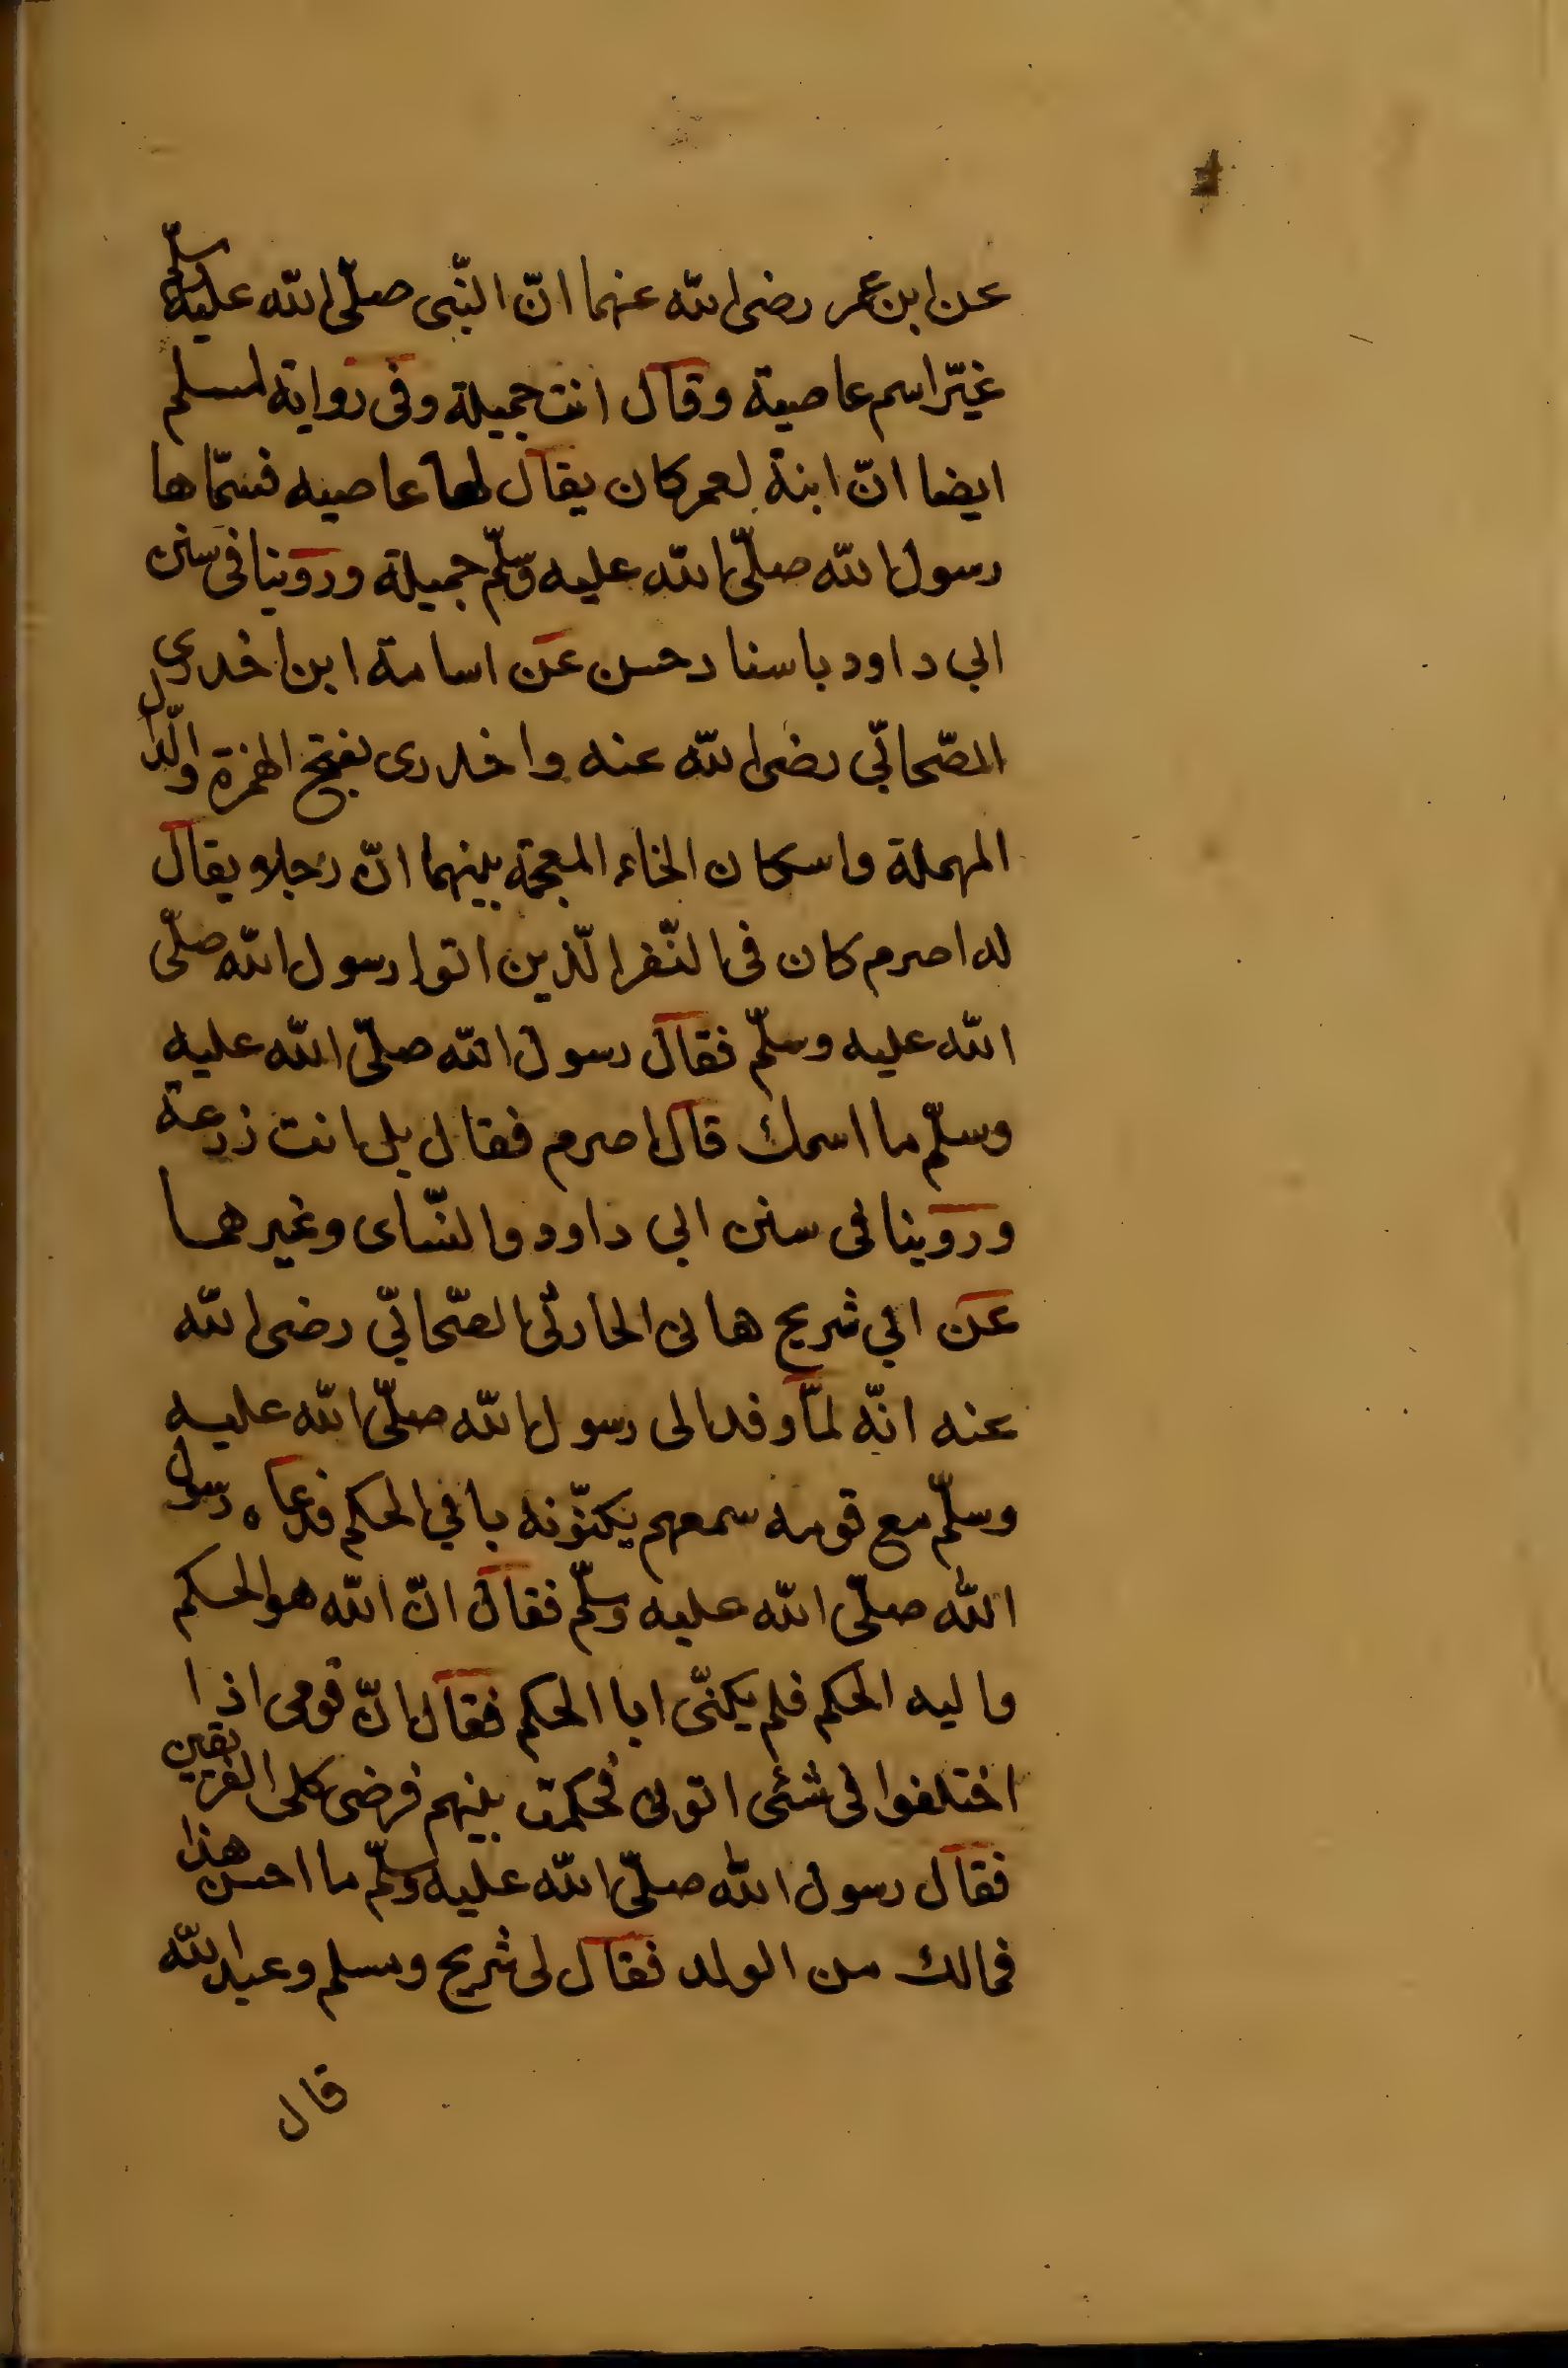 عن ابن عمر رضى الله عنهما انّ النّبى صلّى الله عليه وسلّم
غيّر اسم عاصية وقال انت جميلة وفى رواية لمسلم
ايضا انّ ابنة لعمر كان يقال لها عاصيه فسمّاها
رسول الله صلّى الله عليه وسلّم جميلة وروينا فى سنن
ابي داود باسناد حسن عن اسامة ابن اخدرى
الصّحابّي رضى الله عنه واخدرى بفتح الهمزة والدّال
المهملة واسكان الخاء المعجمة بينهما انّ رجلا يقال
له اصرم كان فى النّفر الّذين اتوا رسول الله صلّى
الله عليه وسلّم فقال رسول الله صلّى الله عليه
وسلّم ما اسمك قال اصرم فقال بل انت زرعة
وروينا فى سنن ابي داود والنّساى وغيرهما
عن ابي شريح هانى الحارثّى الصّحابّي رضى الله
عنه انّه لمّا وفد الى رسول الله صلّى الله عليه
وسلّم مع قومه سمعهم يكنّونه بابي الحكم فدعاه رسول
الله صلّى الله عليه وسلّم فقال انّ الله هو الحكم
واليه الحكم فلم يكنّى ابا الحكم فقال انّ قومى اذا
اختلفوا فى شئى اتونى فحكمت بينهم فرضى كلى الفريقين
فقال رسول الله صلّى الله عليه وسلّم ما احسن هذا
فمالك من الولد فقال لى شريح ومسلم وعبد الله
قال